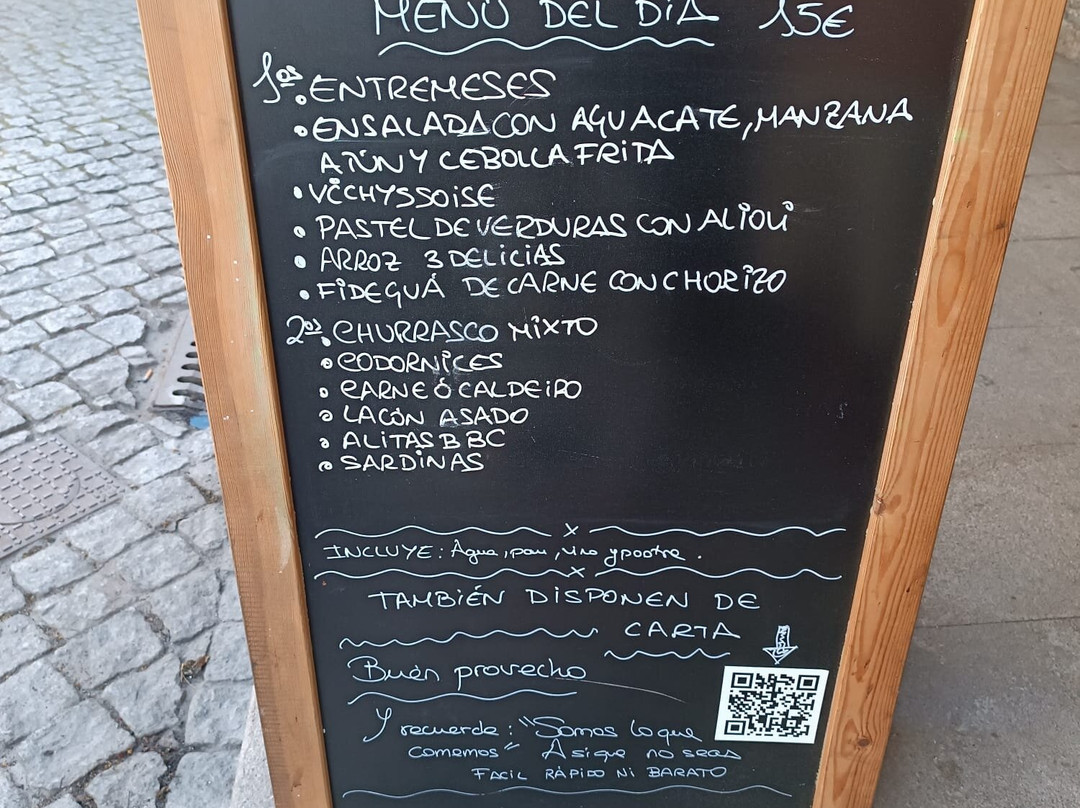 MENÚ DEL DÍA 15€
1os. ENTREMESES
• ENSALADA CON AGUACATE, MANZANA
ATÚN Y CEBOLLA FRITA
• VICHYSSOISE
• PASTEL DE VERDURAS CON ALIOLI
• ARROZ 3 DELICIAS
• FIDEGUÁ DE CARNE CON CHORIZO
2os. CHURRASCO MIXTO
• CODORNICES
• CARNE Ó CALDEIRO
• LACÓN ASADO
• ALITAS BBC
• SARDINAS
INCLUYE: Agua, pan, vino y postre.
TAMBIÉN DISPONEN DE
CARTA
Buén provecho
Y recuerde: "Somos lo que
comemos" Asi que no seas
FACIL RÁPIDO NI BARATO